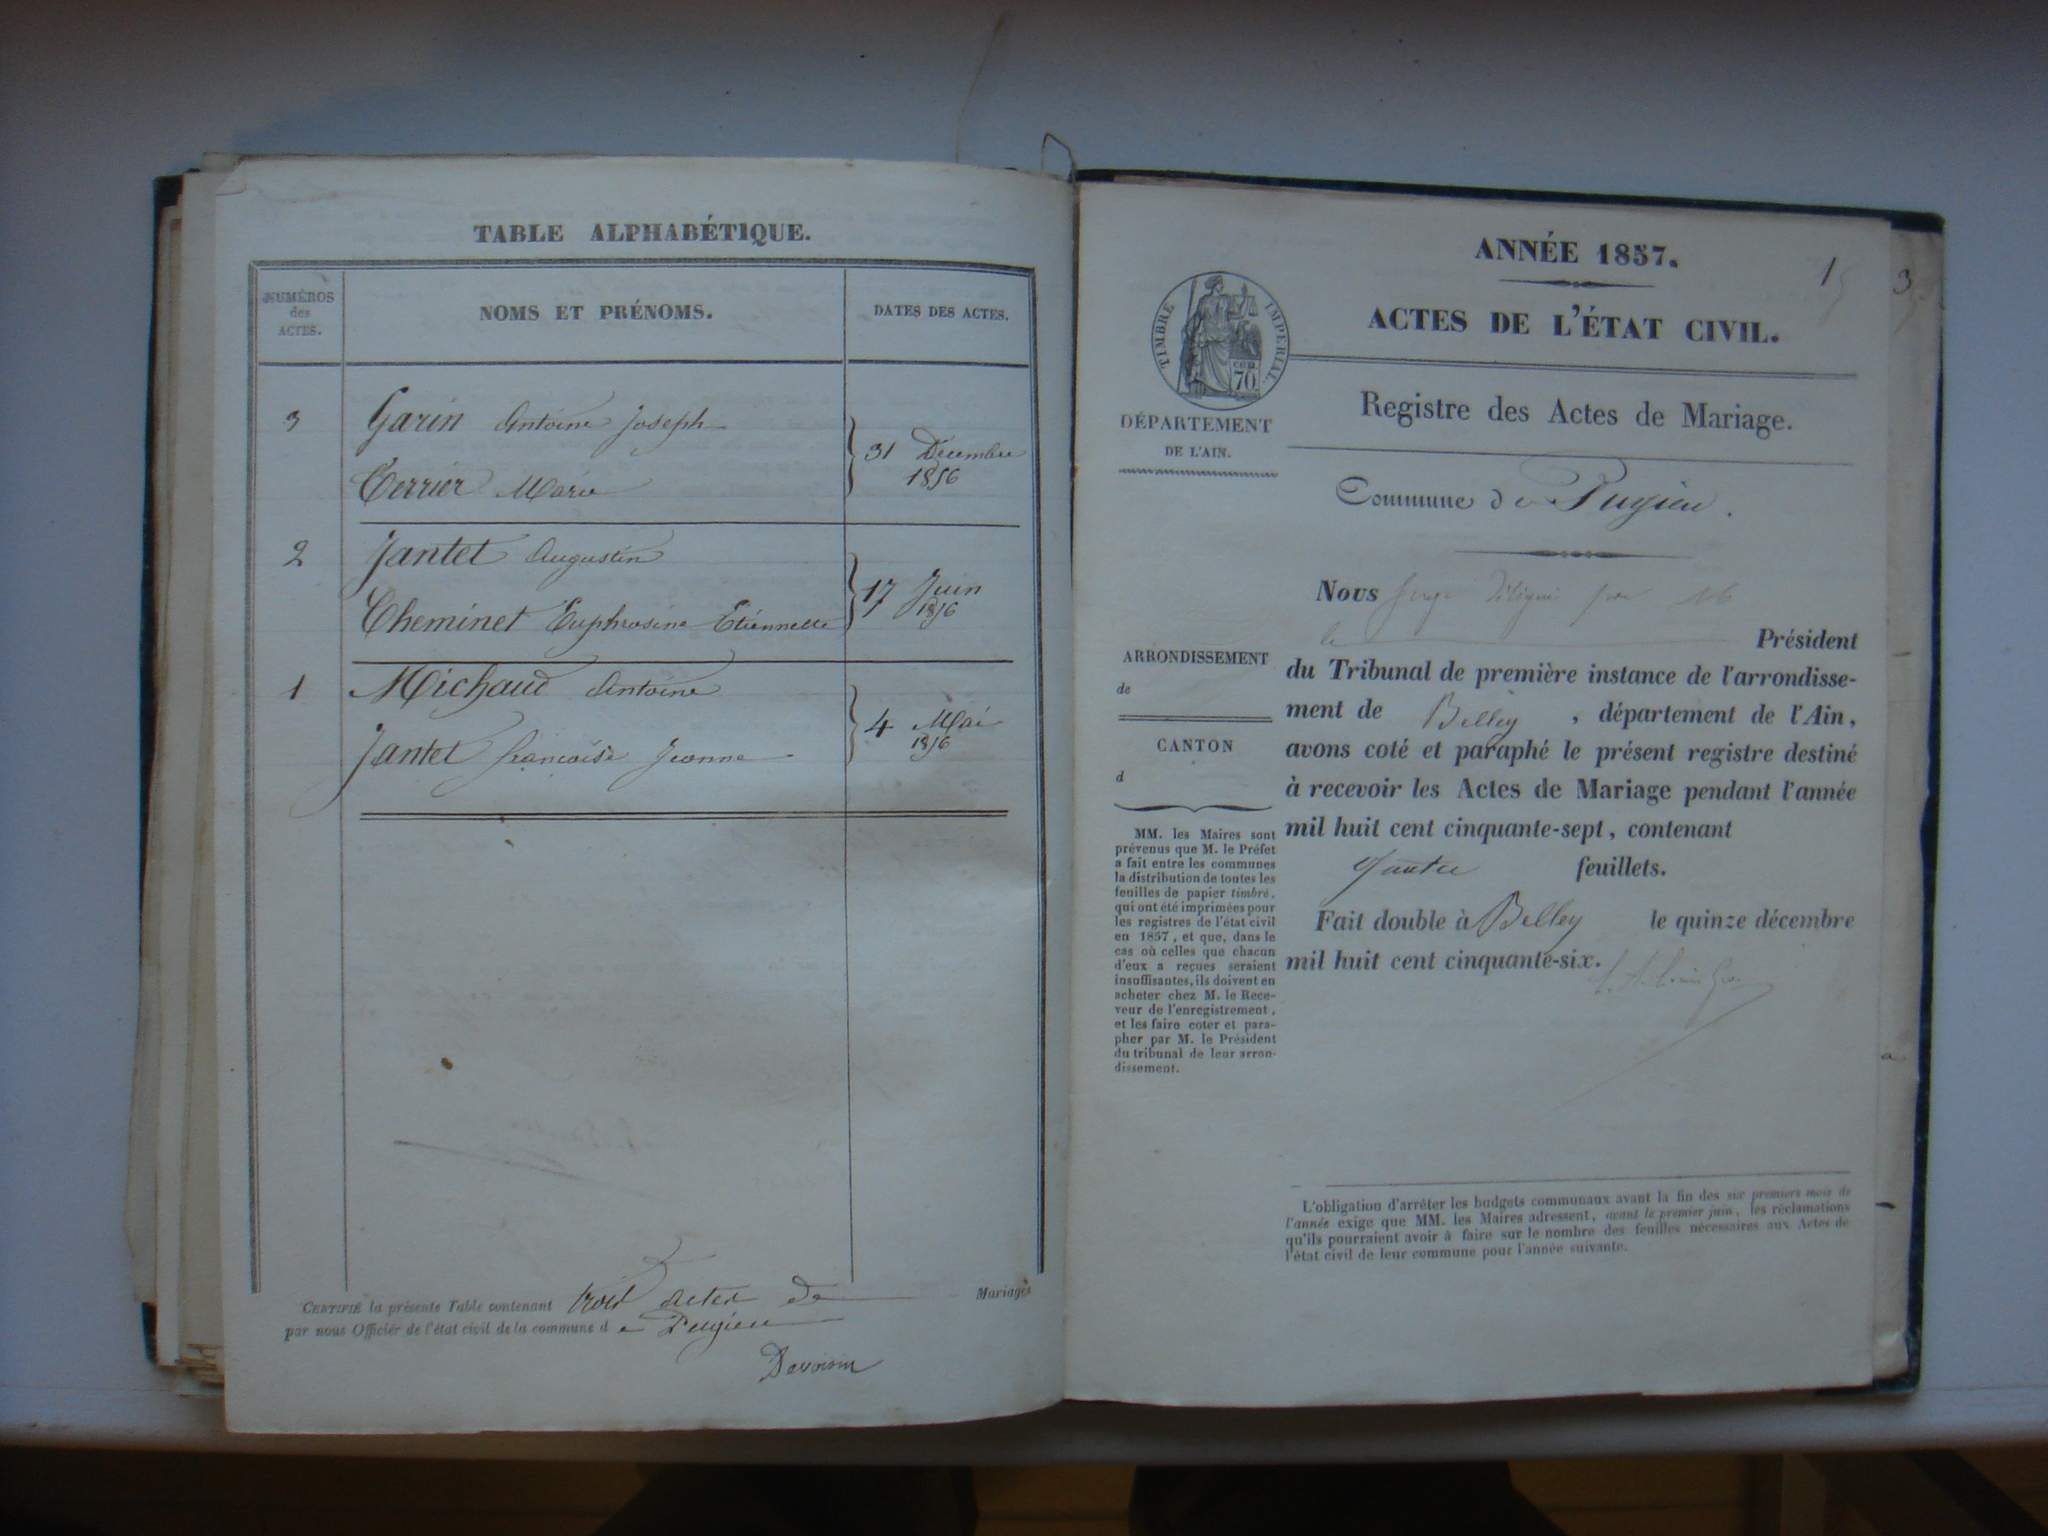 TABLE ALPHABÉTIQUE.
NUMÉROS
des
ACTES.
NOMS ET PRÉNOMS.
DATES DES ACTES.
3 Garin Antoine Joseph
Terrier Marie
31 Décembre
1856
2 Jantet Augustin
Cheminet Euphrosine Etiennette
17 Juin
1856
1 Michaud Antoine
Jantet Françoise Jeanne
4 Mai
1856
CERTIFIÉ la présente Table contenant trois actes de Mariages
par nous Officier de l'état civil de la commune de Pugieu
Devoisin
ANNÉE 1857.
1
3
ACTES DE L'ÉTAT CIVIL.
TIMBRE IMPÉRIAL.
CEN.
70.
DÉPARTEMENT
DE L'AIN.
Registre des Actes de Mariage.
Commune de Pugieu.
ARRONDISSEMENT
de
CANTON
d
MM. les Maires sont
prévenus que M. le Préfet
a fait entre les communes
la distribution de toutes les
feuilles de papier timbré,
qui ont été imprimées pour
les registres de l'état civil
en 1857, et que, dans le
cas où celles que chacun
d'eux a reçues seraient
insuffisantes, ils doivent en
acheter chez M. le Rece-
veur de l'enregistrement,
et les faire coter et para-
pher par M. le Président
du tribunal de leur arron-
dissement.
Nous Juge délégué par M
le Président
du Tribunal de première instance de l'arrondisse-
ment de Belley, département de l'Ain,
avons coté et paraphé le présent registre destiné
à recevoir les Actes de Mariage pendant l'année
mil huit cent cinquante-sept, contenant
quatre feuillets.
Fait double à Belley le quinze décembre
mil huit cent cinquante-six.
L'obligation d'arrêter les budgets communaux avant la fin des six premiers mois de
l'année exige que MM. les Maires adressent, avant le premier juin, les réclamations
qu'ils pourraient avoir à faire sur le nombre des feuilles nécessaires aux Actes de
l'état civil de leur commune pour l'année suivante.